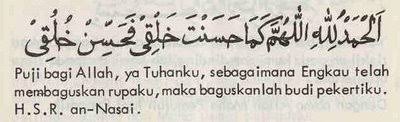 اَلْحَمْدُ لِلّٰهِ اَللّٰهُمَّ كَمَا حَسَنْتَ خَلْقِيْ فَحَسِّنْ خُلُقِيْ
Puji bagi Allah, ya Tuhanku, sebagaimana Engkau telah
membaguskan rupaku, maka baguskanlah budi pekertiku.
H.S.R. an-Nasai.